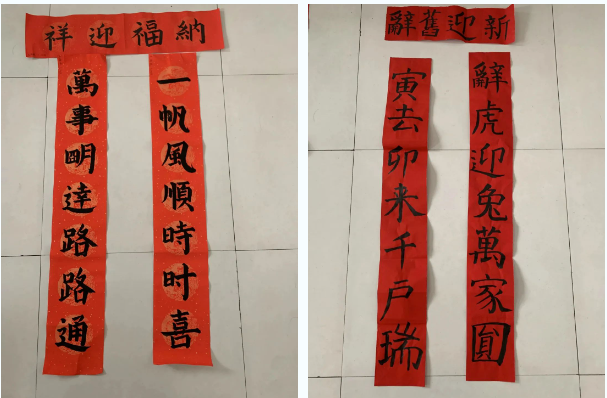 納福迎祥
一帆風順時时喜
萬事眀逹路路通
辭舊迎新
辭虎迎兔萬家圓
寅去卯来千戶瑞